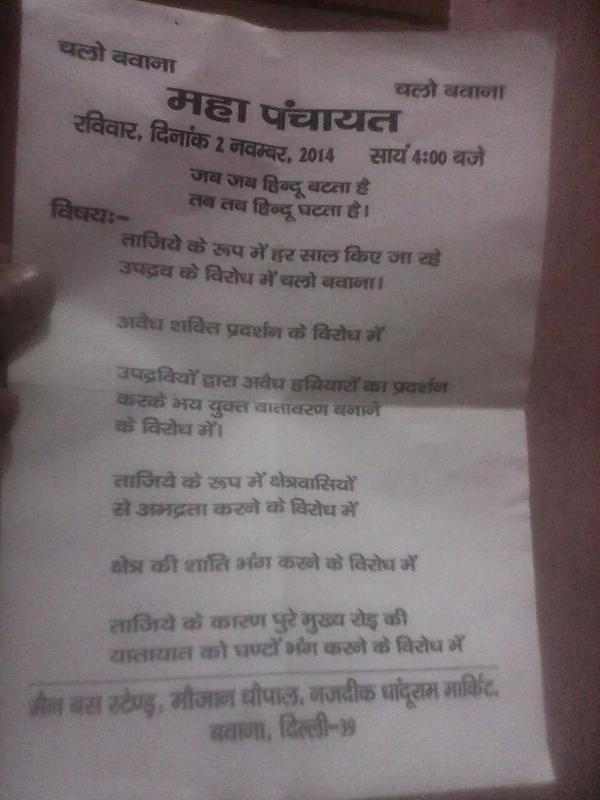 चलो बवाना
चलो बवाना
महा पंचायत
रविवार, दिनांक 2 नवम्बर, 2014 सायं 4:00 बजे
जब जब हिन्दू बटता है
तब तब हिन्दू घटता है।
विषयः-
ताजिये के रूप में हर साल किए जा रहे
उपद्रव के विरोध में चलो बवाना।
अवैध शक्ति प्रदर्शन के विरोध में
उपद्रवियों द्वारा अवैध हथियारों का प्रदर्शन
करके भय युक्त वातावरण बनाने
के विरोध में।
ताजिये के रूप में क्षेत्रवासियों
से अभद्रता करने के विरोध में
क्षेत्र की शांति भंग करने के विरोध में
ताजिये के कारण पुरे मुख्य रोड़ की
यातायात को घण्टों भंग करने के विरोध में
मैन बस स्टेण्ड, मौजान चौपाल, नजदीक धांदूराम मार्किट,
बवाना, दिल्ली-39